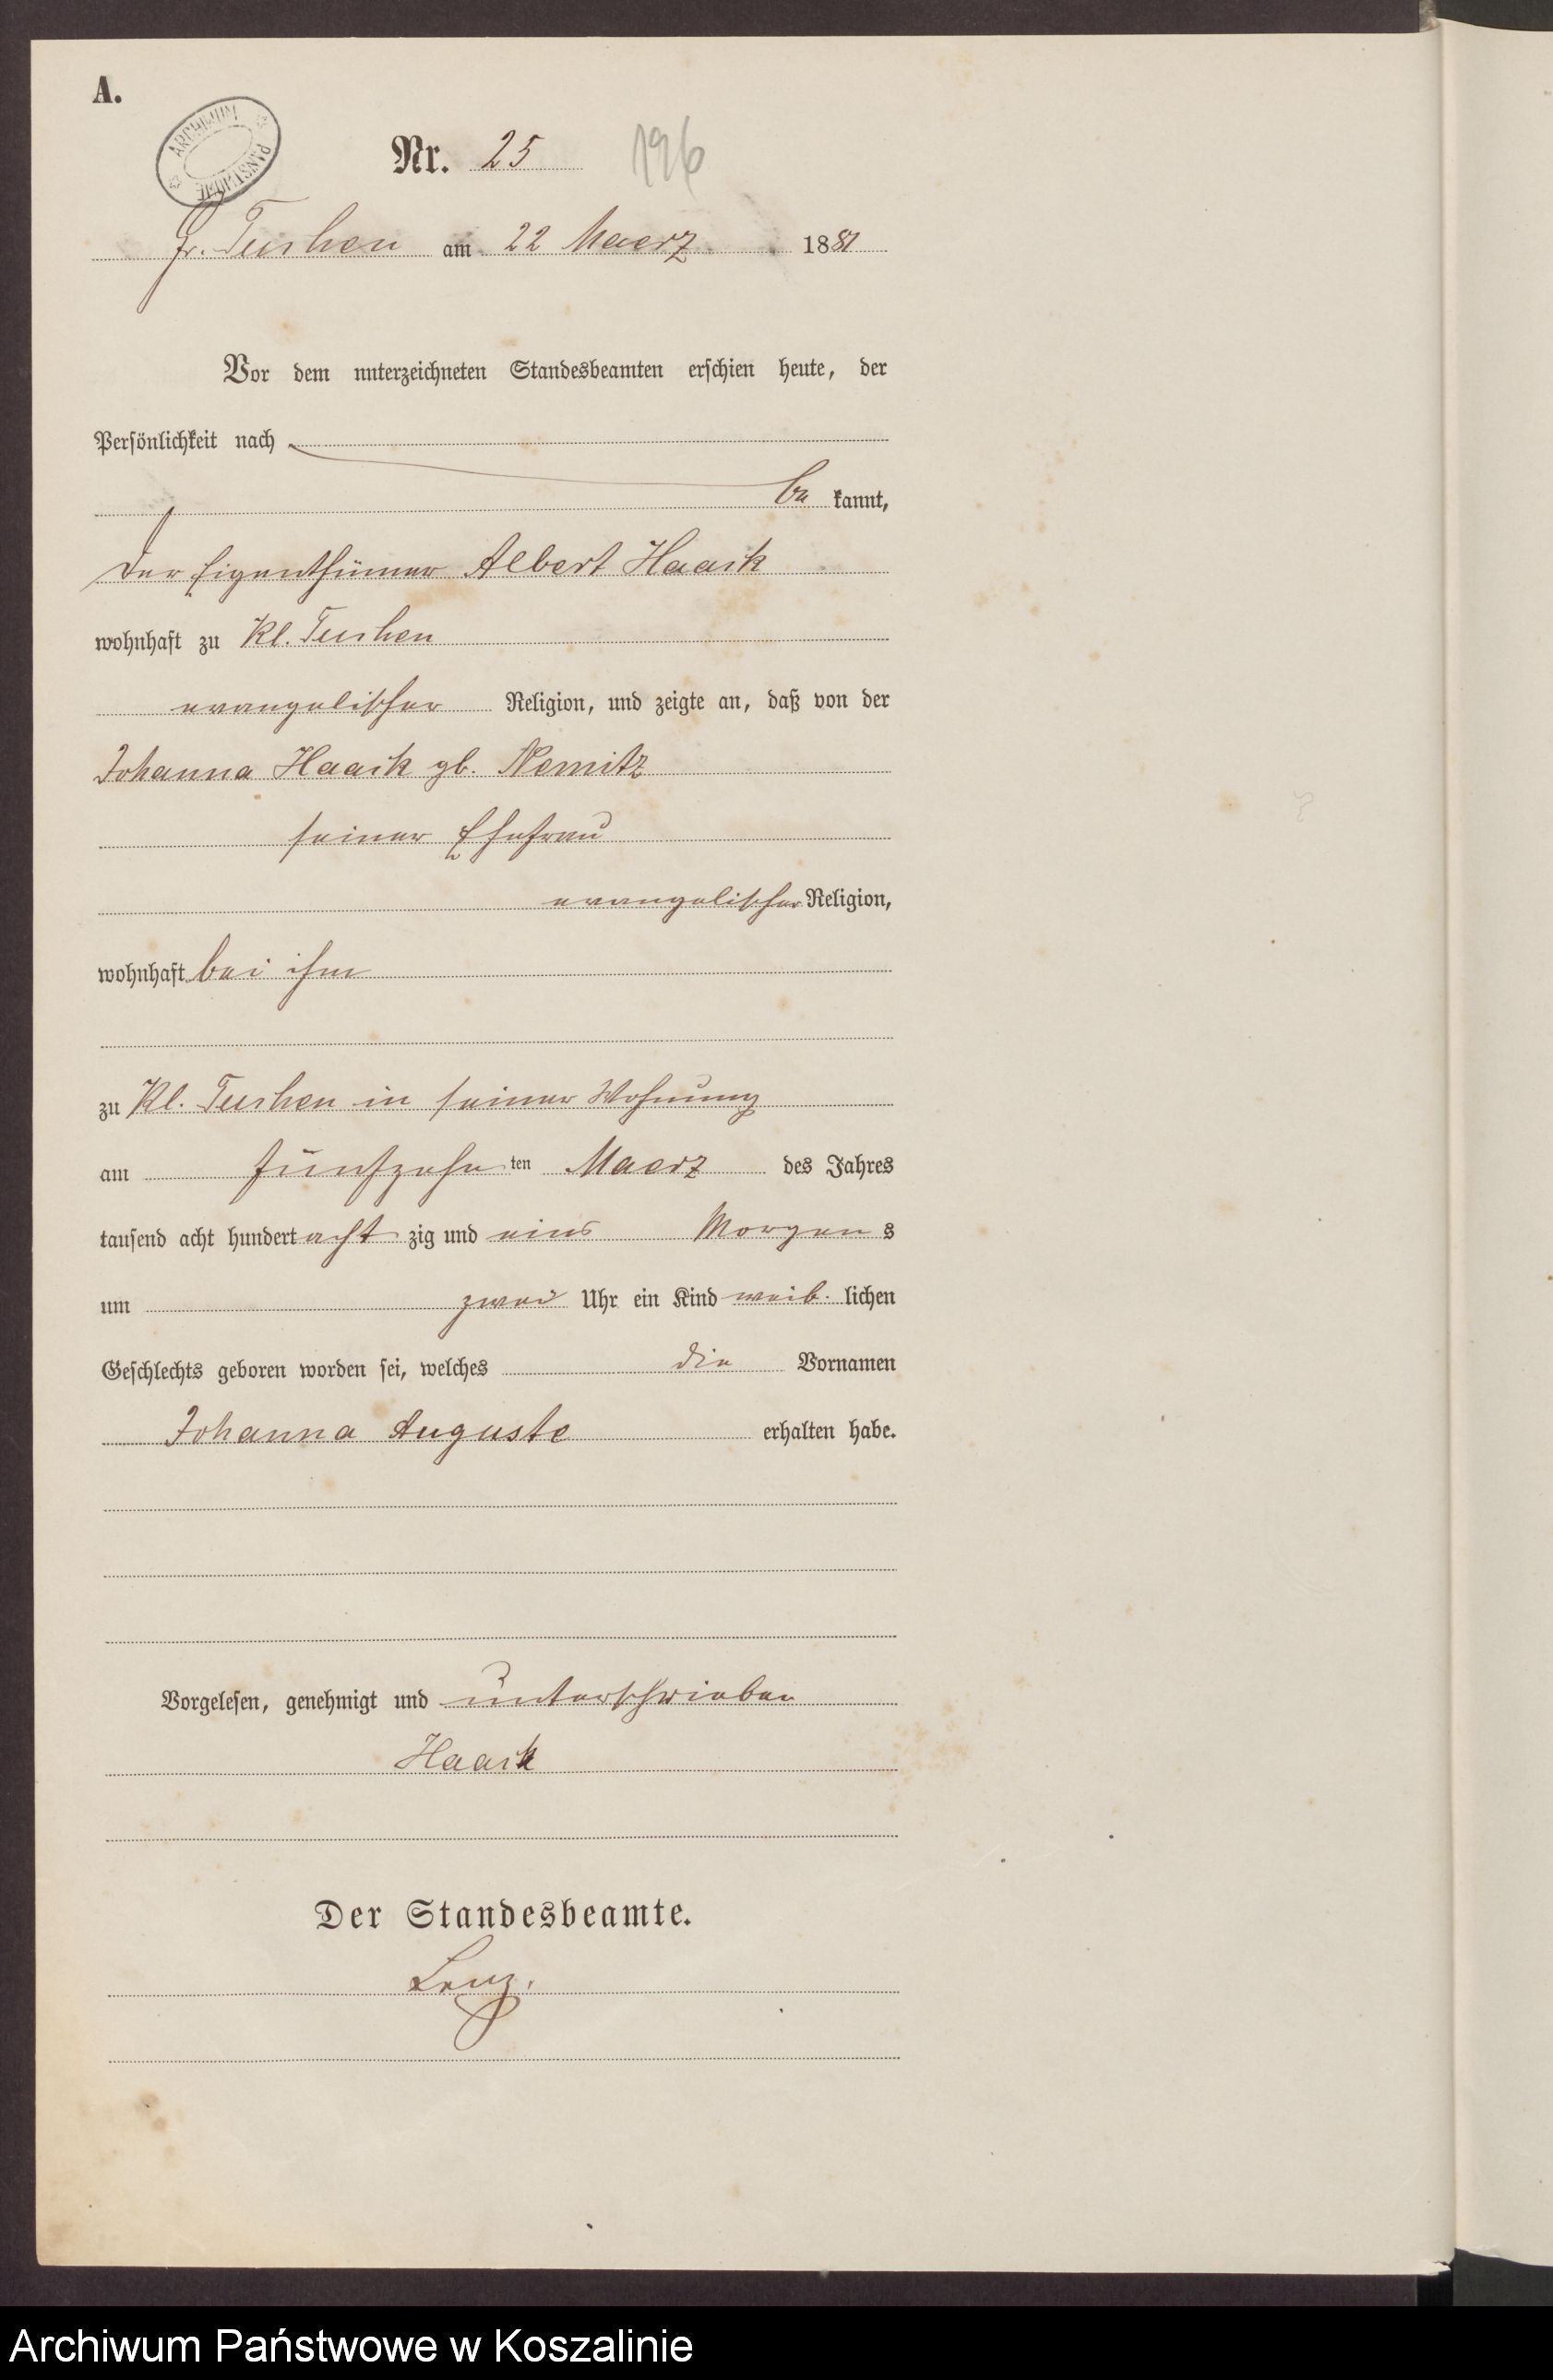 A.
ARCHIWUM PAŃSTWOWE
Nr. 25 196
Gr. Tuchen am 22 Maerz 1881
Vor dem unterzeichneten Standesbeamten erschien heute, der
Persönlichkeit nach
be kannt,
der Eigenthümer Albert Haack
wohnhaft zu Kl. Tuchen
evangelischer Religion, und zeigte an, daß von der
Johanna Haack gb. Nemitz
seiner Ehefrau
evangelischer Religion,
wohnhaft bei ihm
zu Kl. Tuchen in seiner Wohnung
am fünfzehn ten Maerz des Jahres
tausend acht hundert acht zig und eins Morgen s
um zwei Uhr ein Kind weib. lichen
Geschlechts geboren worden sei, welches die Vornamen
Johanna Auguste erhalten habe.
Vorgelesen, genehmigt und unterschrieben
Haack
Der Standesbeamte.
Lenz.
Archiwum Państwowe w Koszalinie